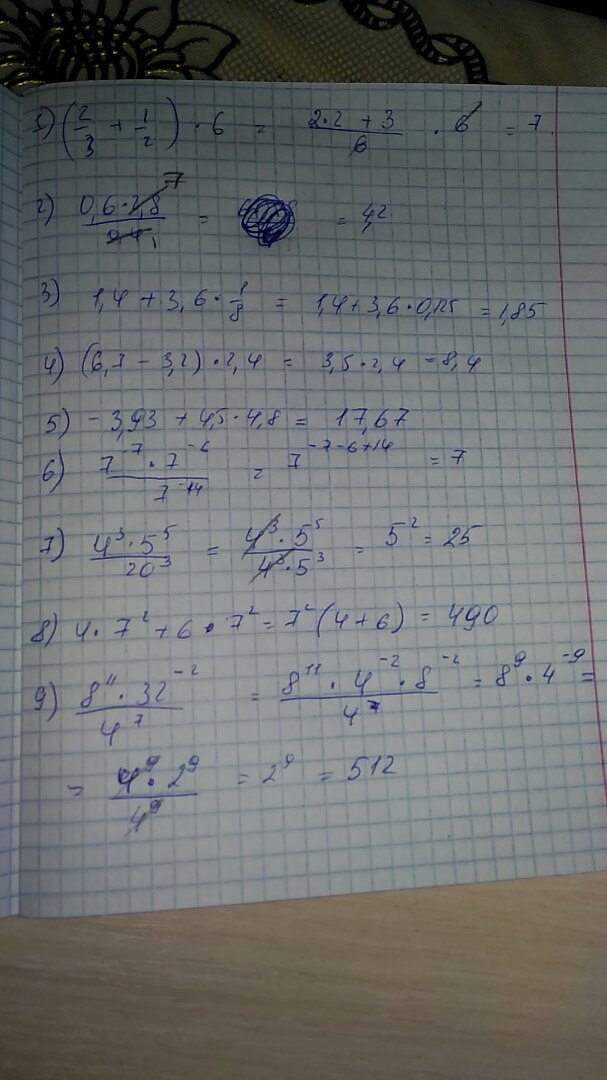 1) (2/3 + 1/2) · 6 = (2·2 + 3)/6 · 6 = 7.
2) (0,6 · 2,8)/0,4 = = 4,2
7
1
3) 1,4 + 3,6 · 1/8 = 1,4 + 3,6 · 0,125 = 1,85
4) (6,7 − 3,2) · 2,4 = 3,5 · 2,4 = 8,4
5) − 3,93 + 4,5 · 4,8 = 17,67
6) (7^-7 · 7^-6)/7^-14 = 7^-7-6+14 = 7
7) (4^3 · 5^5)/20^3 = (4^3 · 5^5)/(4^3 · 5^3) = 5^2 = 25
8) 4 · 7^2 + 6 · 7^2 = 7^2 (4 + 6) = 490
9) (8^11 · 32^-2)/4^7 = (8^11 · 4^-2 · 8^-2)/4^7 = 8^9 · 4^-9 =
= (4^9 · 2^9)/4^9 = 2^9 = 512